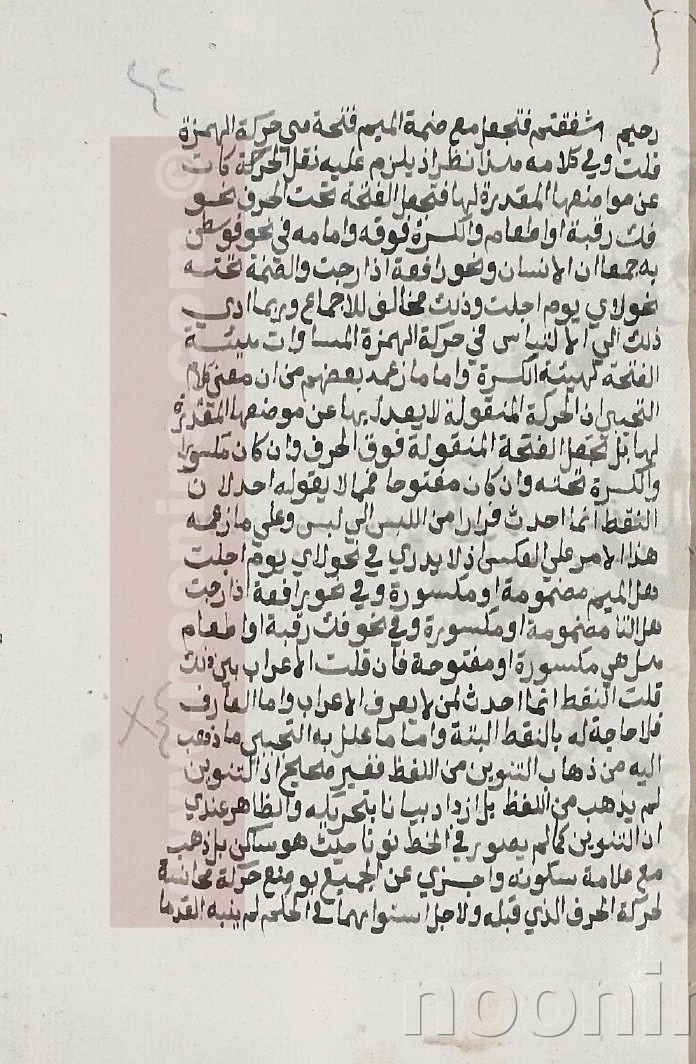 رحيم اشفقتم فتجعل مع ضمة الميم فتحة هي حركة الهمزة
قلت وفي كلامه هذا نظر اذ يلزم عليه نقل الحركة كات
عن مواضعها المقدرة لها فتجعل الفتحة تحت الحرف نحو
فك رقبة او اطعام والكسرة فوقه وامامه في نحو فوسطن
به جمعا ان الانسان ونحو رافعة اذا رجت والضمة تحته
نحو لاي يوم اجلت وذلك مخالف للاجماع وربما ادي
ذلك الي الالتباس في حركة الهمزة المساوات هيئة
الفتحة لهيئة الكسرة واما ما زعمه بعضهم من ان معني كلام
التجيبي ان الحركة المنقولة لا يعدل بها عن موضعها المقدرة
لها بل تجعل الفتحة المنقولة فوق الحرف وان كان مكسورا
والكسرة تحته وان كان مفتوحا فمما لا يقوله احد لان
النقط انما احدث فرارا من اللبس الي لبس وعلي ما زعمه
هذا الامر علي العكس اذ لا يدري في نحو لاي يوم اجلت
هل الميم مضمومة او مكسورة وفي نحو رافعة اذا رجت
هل التا مضمومة او مكسورة وفي نحو فك رقبة او اطعام
هل هي مكسورة او مفتوحة فان قلت الاعراب يبين ذلك
قلت النقط انما احدث لمن لا يعرف الاعراب واما العارف
فلا حاجة له بالنقط البتة واما ما علل به التجيبي ما ذهب
اليه من ذهاب التنوين من اللفظ فغير صحيح اذ التنوين
لم يذهب من اللفظ بل ازداد بيانا بتحريكه والظاهر عندي
ان التنوين كما لم يصور في الخط نونا حيث هو ساكن بل ذهب
مع علامة سكونه واجزي عن الجميع بوضع حركة مجانسة
لحركة الحرف الذي قبله ولاجل استوايهما في الحكم لم ينبه القدما
www.noonin.com ©
noonin